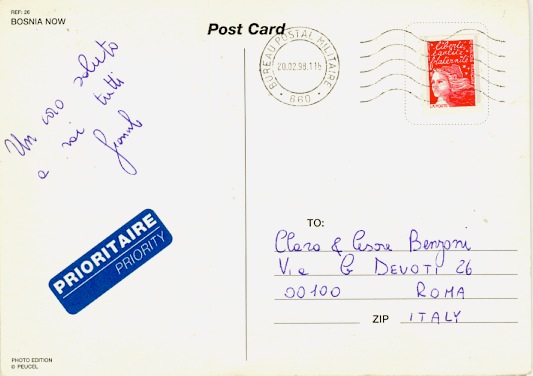 REF: 26
BOSNIA NOW
Post Card
Un caro saluto
a voi tutti
BUREAU POSTAL MILITAIRE
20.02.98.11h
660
liberté
égalité
fraternité
LA POSTE
PRIORITAIRE
PRIORITY
TO:
Clara & Cesare Benzoni
Via G DEVOTI 26
00100 ROMA
ZIP ITALY
PHOTO EDITION
© PEUCEL